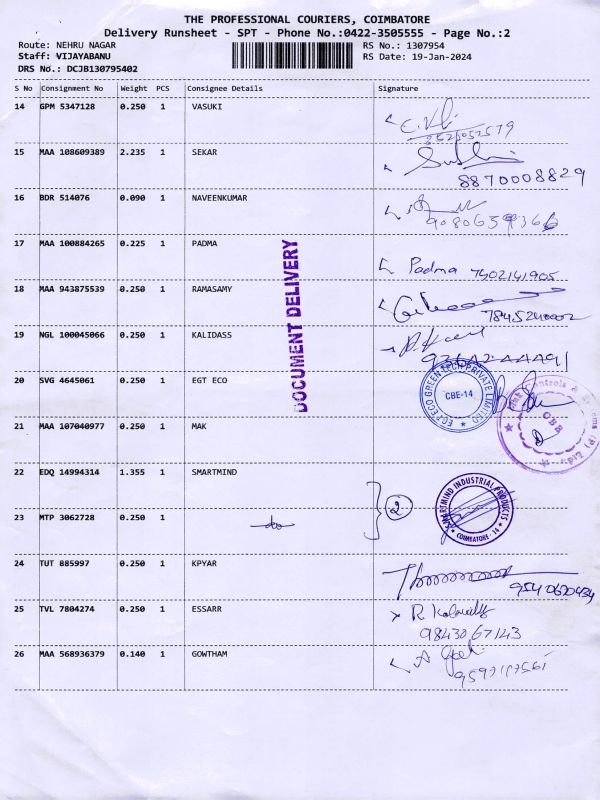 THE PROFESSIONAL COURIERS, COIMBATORE
Delivery Runsheet - SPT - Phone No.:0422-3505555 - Page No.:2
Route: NEHRU NAGAR RS No.: 1307954
Staff: VIJAYABANU RS Date: 19-Jan-2024
DRS No.: DCJB130795402
S No Consignment No Weight PCS Consignee Details Signature
14 GPM 5347128 0.250 1 VASUKI
15 MAA 108609389 2.235 1 SEKAR
8870008829
16 BDR 514076 0.090 1 NAVEENKUMAR
17 MAA 100884265 0.225 1 PADMA
Padma 7402141905
18 MAA 943875539 0.250 1 RAMASAMY
7845240002
19 NGL 100045066 0.250 1 KALIDASS
DOCUMENT DELIVERY
20 SVG 4645061 0.250 1 EGT ECO
EGT ECO GREEN TECH PRIVATE LIMITED
CBE-14
21 MAA 107040977 0.250 1 MAK
Controls & Systems (P) Ltd.
CBE
22 EDQ 14994314 1.355 1 SMARTMIND
2
SMARTMIND INDUSTRIAL PRODUCTS
COIMBATORE - 14
23 MTP 3062728 0.250 1 do
24 TUT 885997 0.250 1 KPYAR
25 TVL 7804274 0.250 1 ESSARR
9843067143
26 MAA 568936379 0.140 1 GOWTHAM